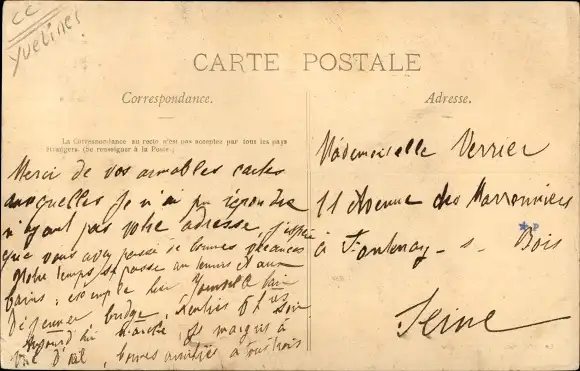 CC
Yvelines
CARTE POSTALE
Correspondance.
Adresse.
La Correspondance au recto n'est pas acceptée par tous les pays
étrangers. (Se renseigner à la Poste.)
Merci de vos aimables cartes
auxquelles je n'ai pu répondre
n'ayant pas votre adresse, j'espère
que vous avez passé de bonnes vacances
Notre temps se passe au tennis et aux
bains
Déjeuner bridge,
Aujourd'hui marche,
Val d'
bonnes amitiés à tous trois
Mademoiselle Verrier
11 Avenue des Marronniers
à Fontenay - s - Bois
Seine